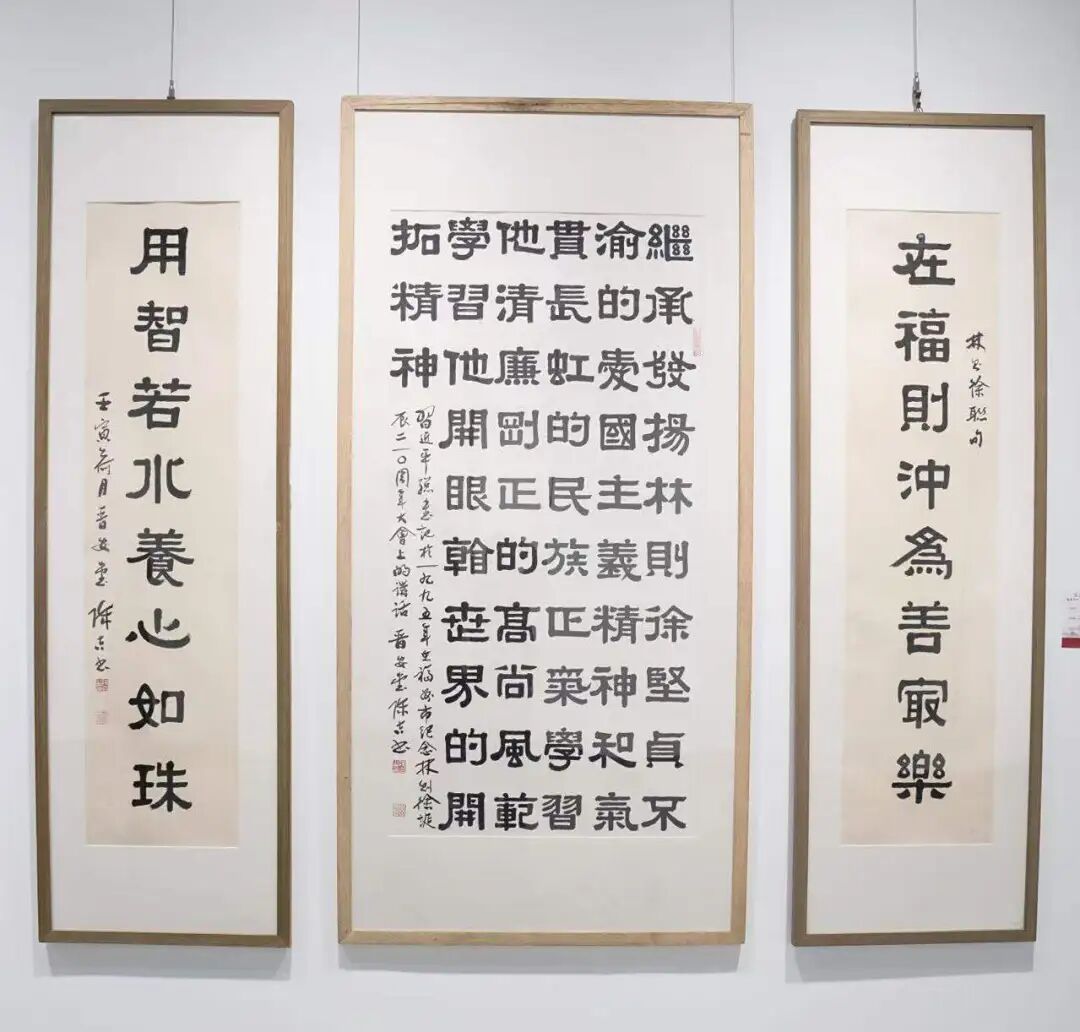 在福則沖為善冣樂
林則徐聯句
繼承發揚林則徐堅貞不
渝的愛國主義精神和氣
貫長虹的民族正氣學習
他清廉剛正的高尚風範
學習他開眼翰世界的開
拓精神
習近平總書記於一九九五年在福州市紀念林則徐誕
辰二一〇周年大會上的講話 晋安堂 陳吉書
用智若水養心如珠
壬寅荷月晋安堂 陳吉書